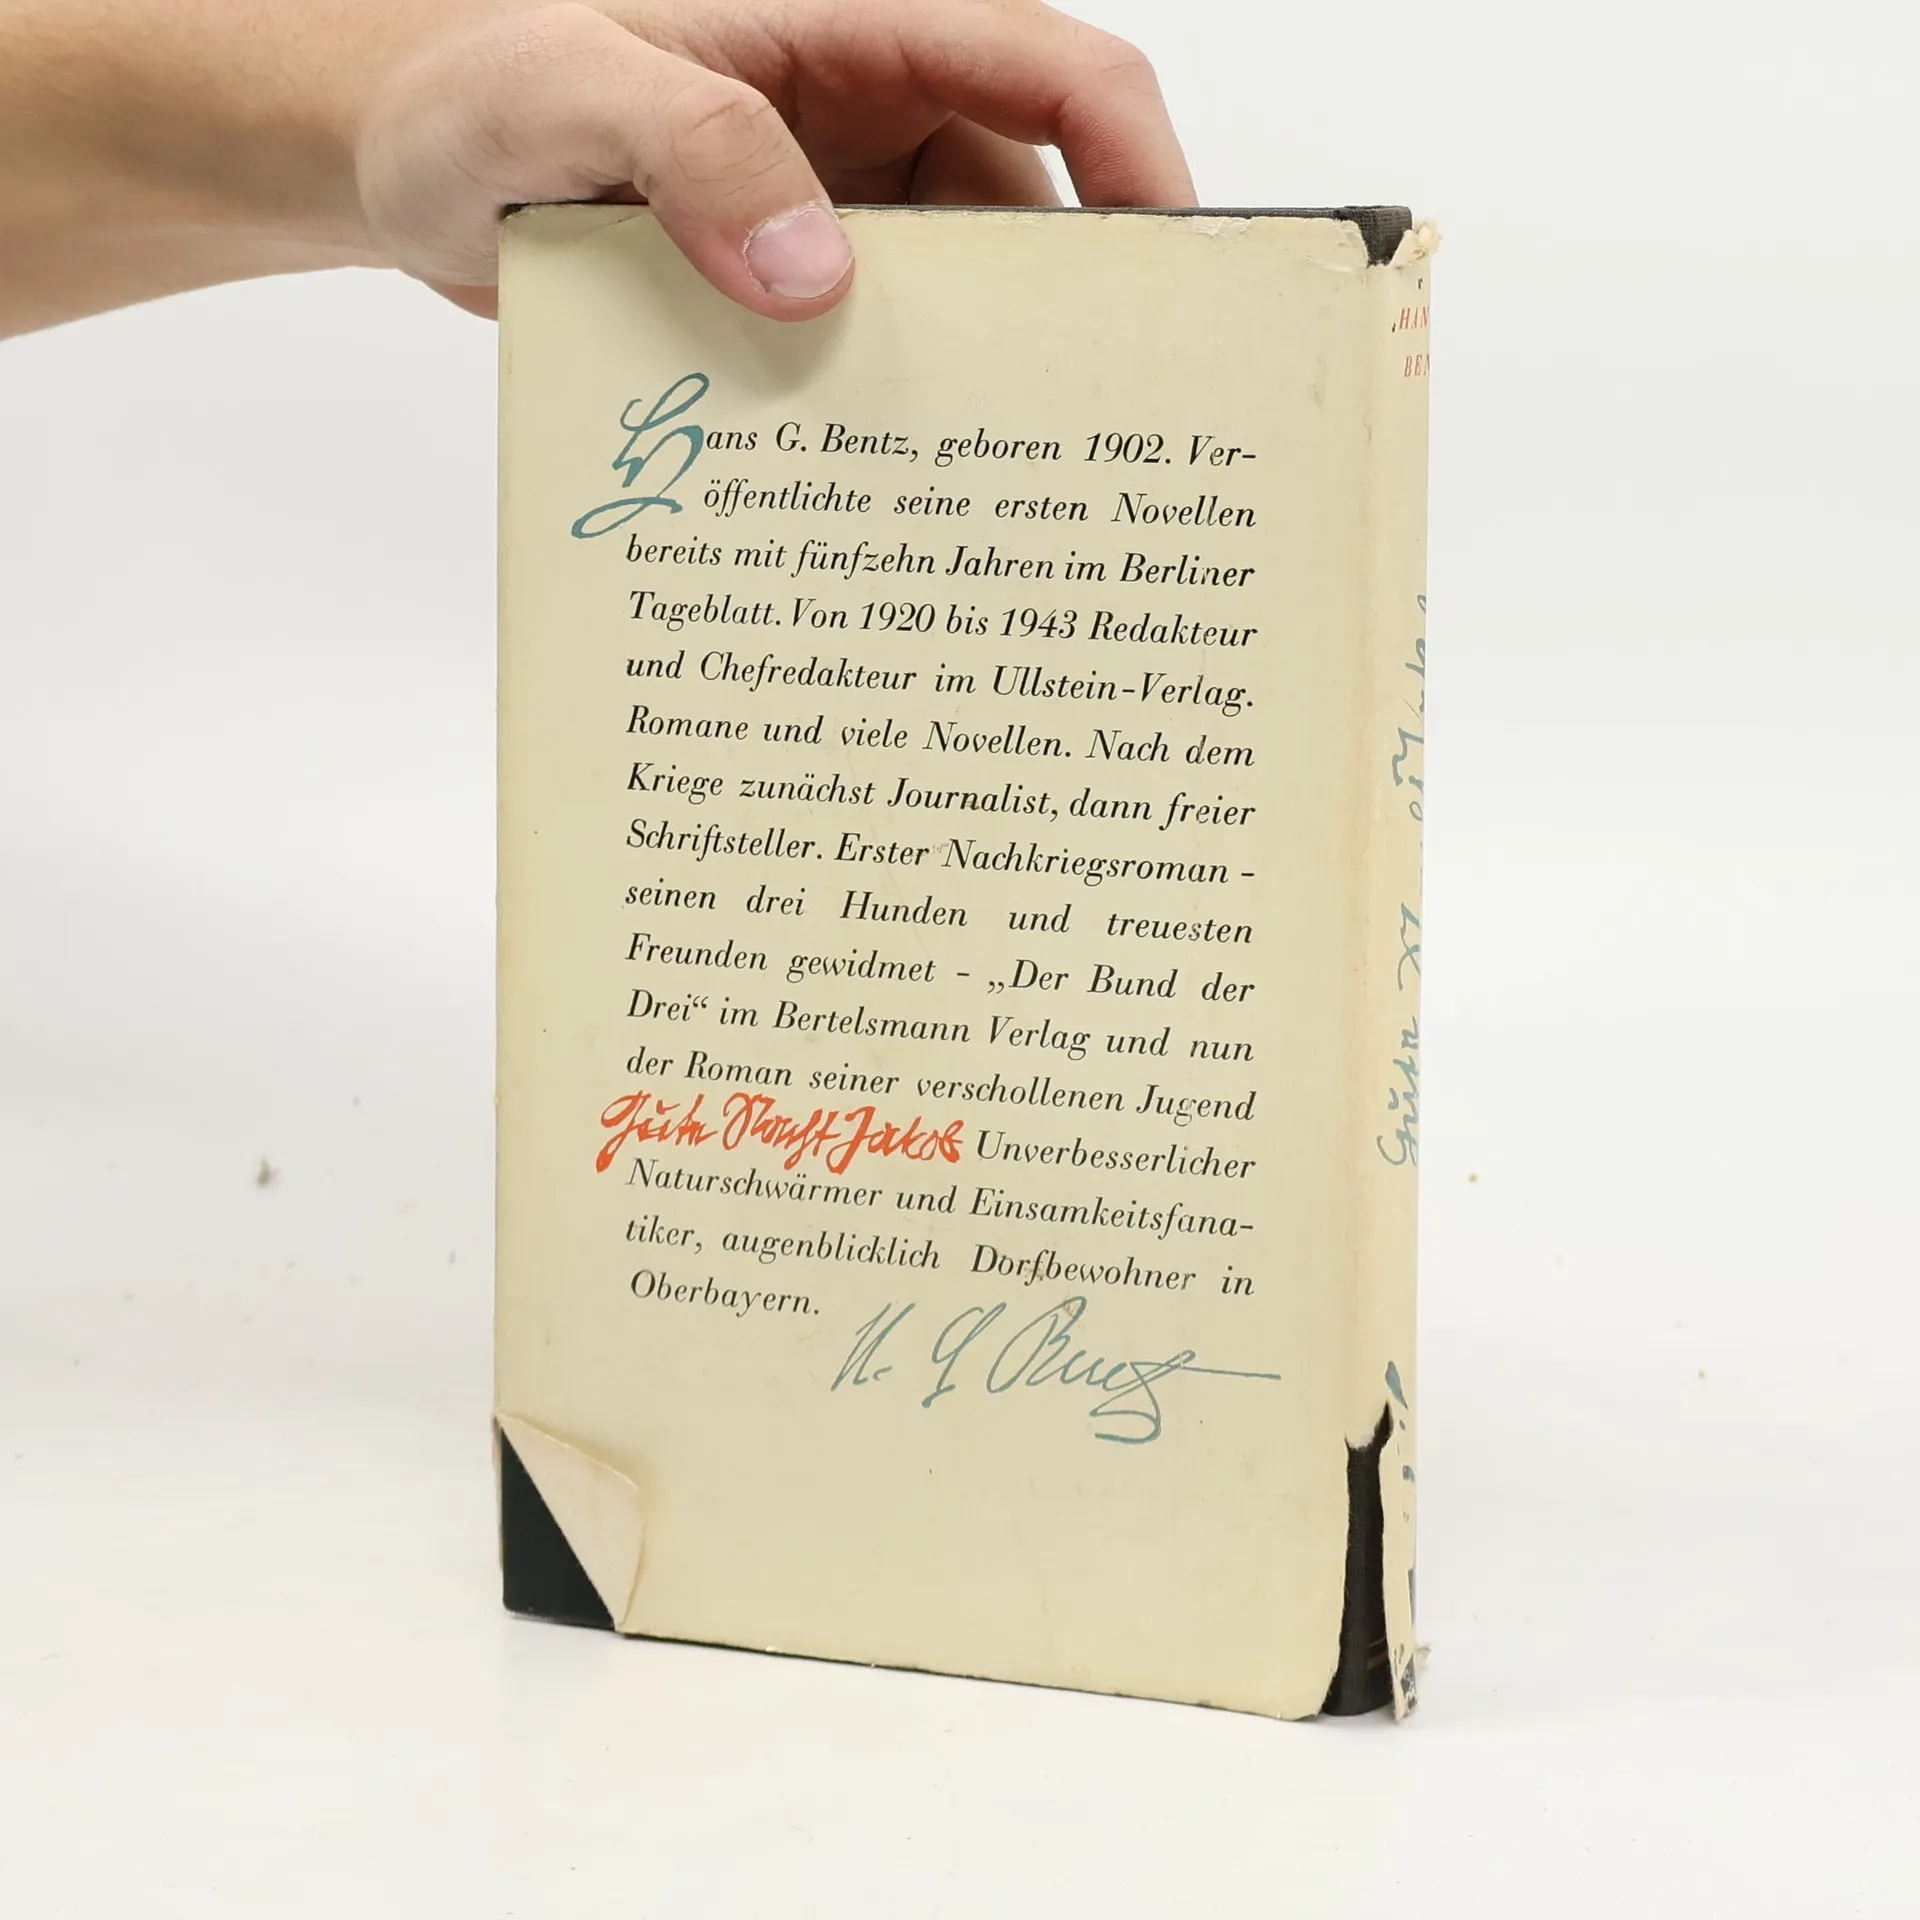 Hans G. Bentz, geboren 1902. Ver-
öffentlichte seine ersten Novellen
bereits mit fünfzehn Jahren im Berliner
Tageblatt. Von 1920 bis 1943 Redakteur
und Chefredakteur im Ullstein-Verlag.
Romane und viele Novellen. Nach dem
Kriege zunächst Journalist, dann freier
Schriftsteller. Erster Nachkriegsroman -
seinen drei Hunden und treuesten
Freunden gewidmet - „Der Bund der
Drei“ im Bertelsmann Verlag und nun
der Roman seiner verschollenen Jugend
Gute Nacht Jakob Unverbesserlicher
Naturschwärmer und Einsamkeitsfana-
tiker, augenblicklich Dorfbewohner in
Oberbayern.
H. G Bentz
HAN
BEN